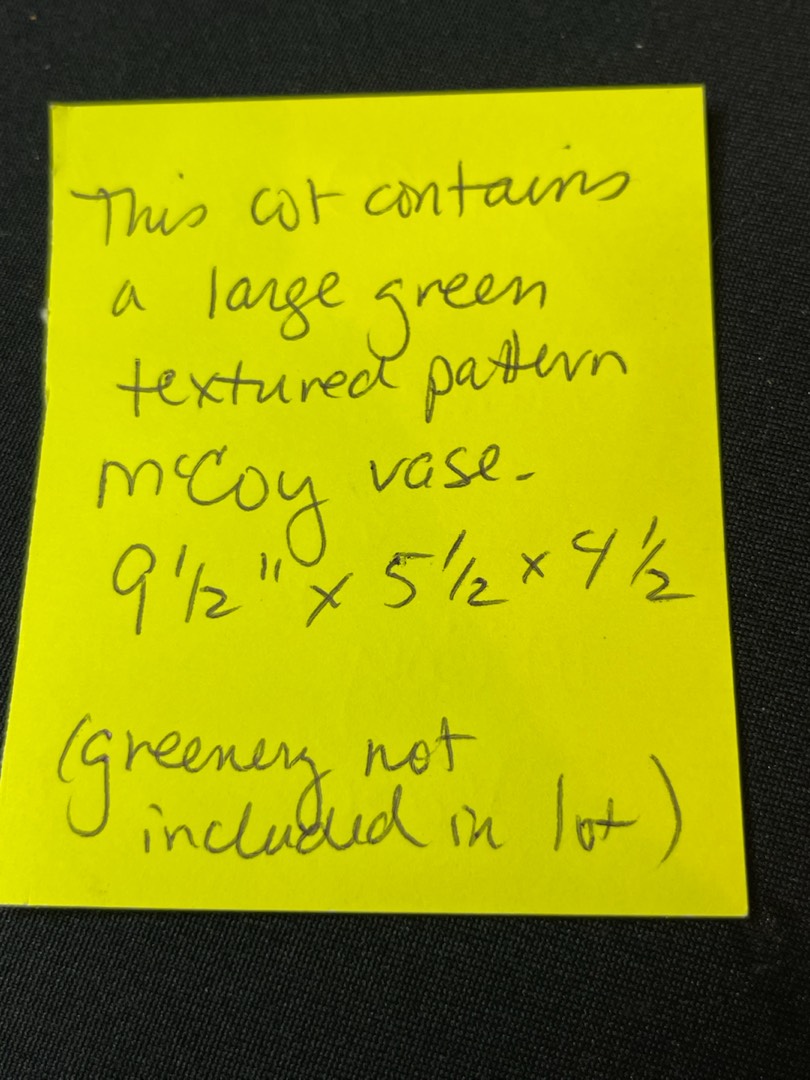 This lot contains
a large green
textured pattern
McCoy vase.
9 1/2" x 5 1/2 x 4 1/2
(greenery not
included in lot)